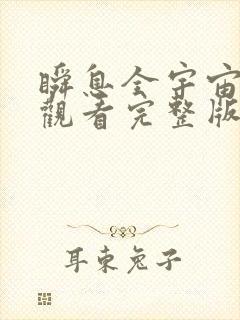 瞬息全宇宙
觀看完整版
耳東兔子